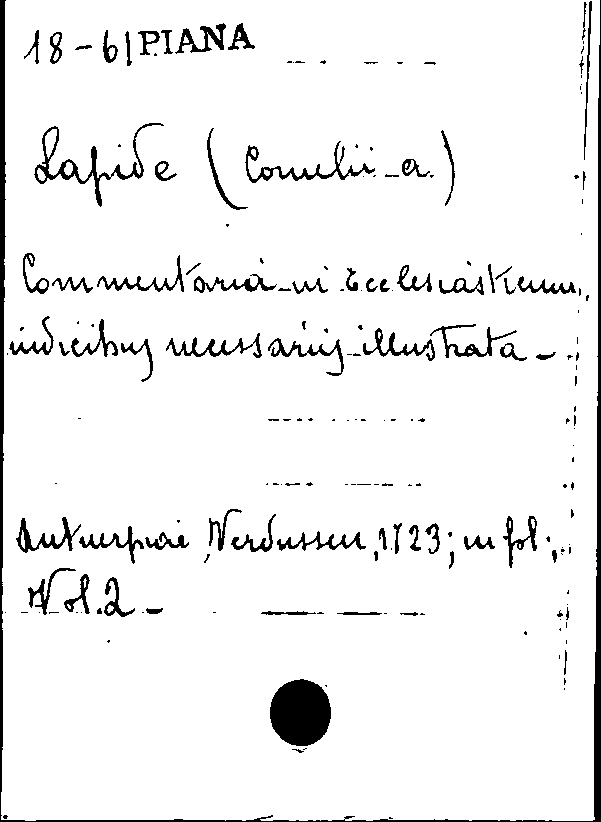 18-6|PIANA
Lapide (Cornelii a)
Commentaria in Ecclesiasticum,
indicibus necessariis illustrata -
Antuerpiae, Verdussen, 1723; in fol.;
Vol. 2 -